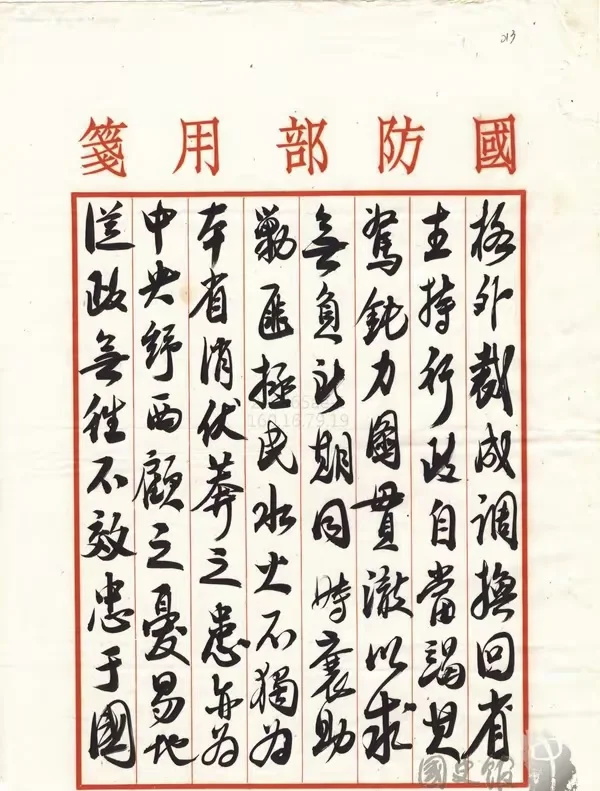 013
國防部用箋
格外裁成調撫回省
主持行政自當竭其
駑鈍力圖貫澈以求
無負斯期同時襄助
勦匪拯民水火不獨為
本省消伏莽之患亦為
中央紓西顧之憂易地
從政無往不效忠于國
國史館